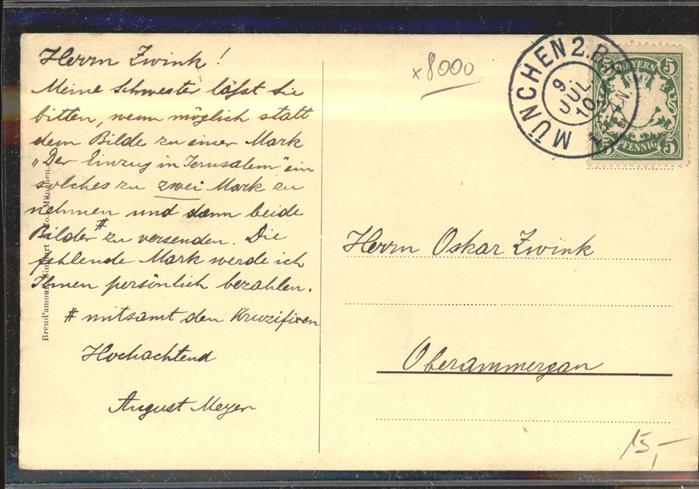 Herrn Zwink!
Meine Schwester läßt Sie
bitten, wenn möglich statt
dem Bilde zu einer Mark
„Der Einzug in Jerusalem" ein
solches zu zwei Mark zu
nehmen und dann beide
Bilder # zu versenden. Die
fehlende Mark werde ich
Ihnen persönlich bezahlen.
# mitsamt den Kruzifixen
Hochachtend
August Meyer
x8000
MÜNCHEN 2. B.
9. JUL 10
BAYERN
5 5
5 5
PFENNIG
Herrn Oskar Zwink
Oberammergau
15,-
Brend'amour, Simhart & Co., München.